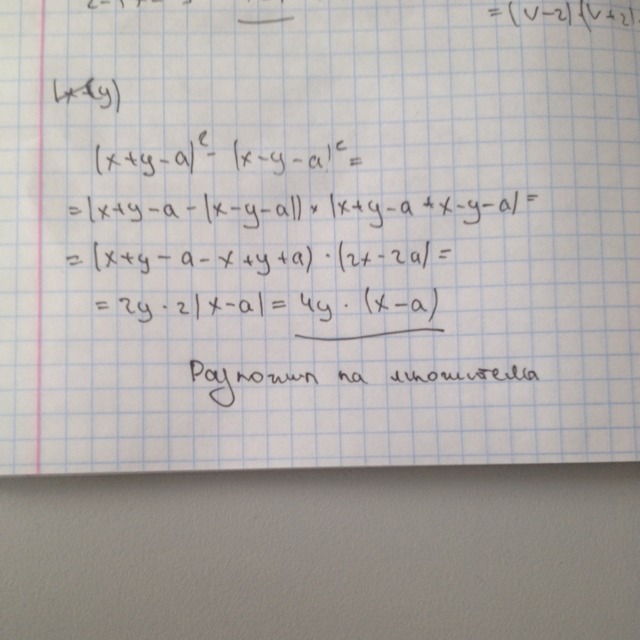 = (v-2)(v+2)
(x+y-a)² - (x-y-a)² =
= (x+y-a - (x-y-a)) · (x+y-a+x-y-a) =
= (x+y-a-x+y+a) · (2x-2a) =
= 2y · 2(x-a) = 4y · (x-a)
Разложил на множители